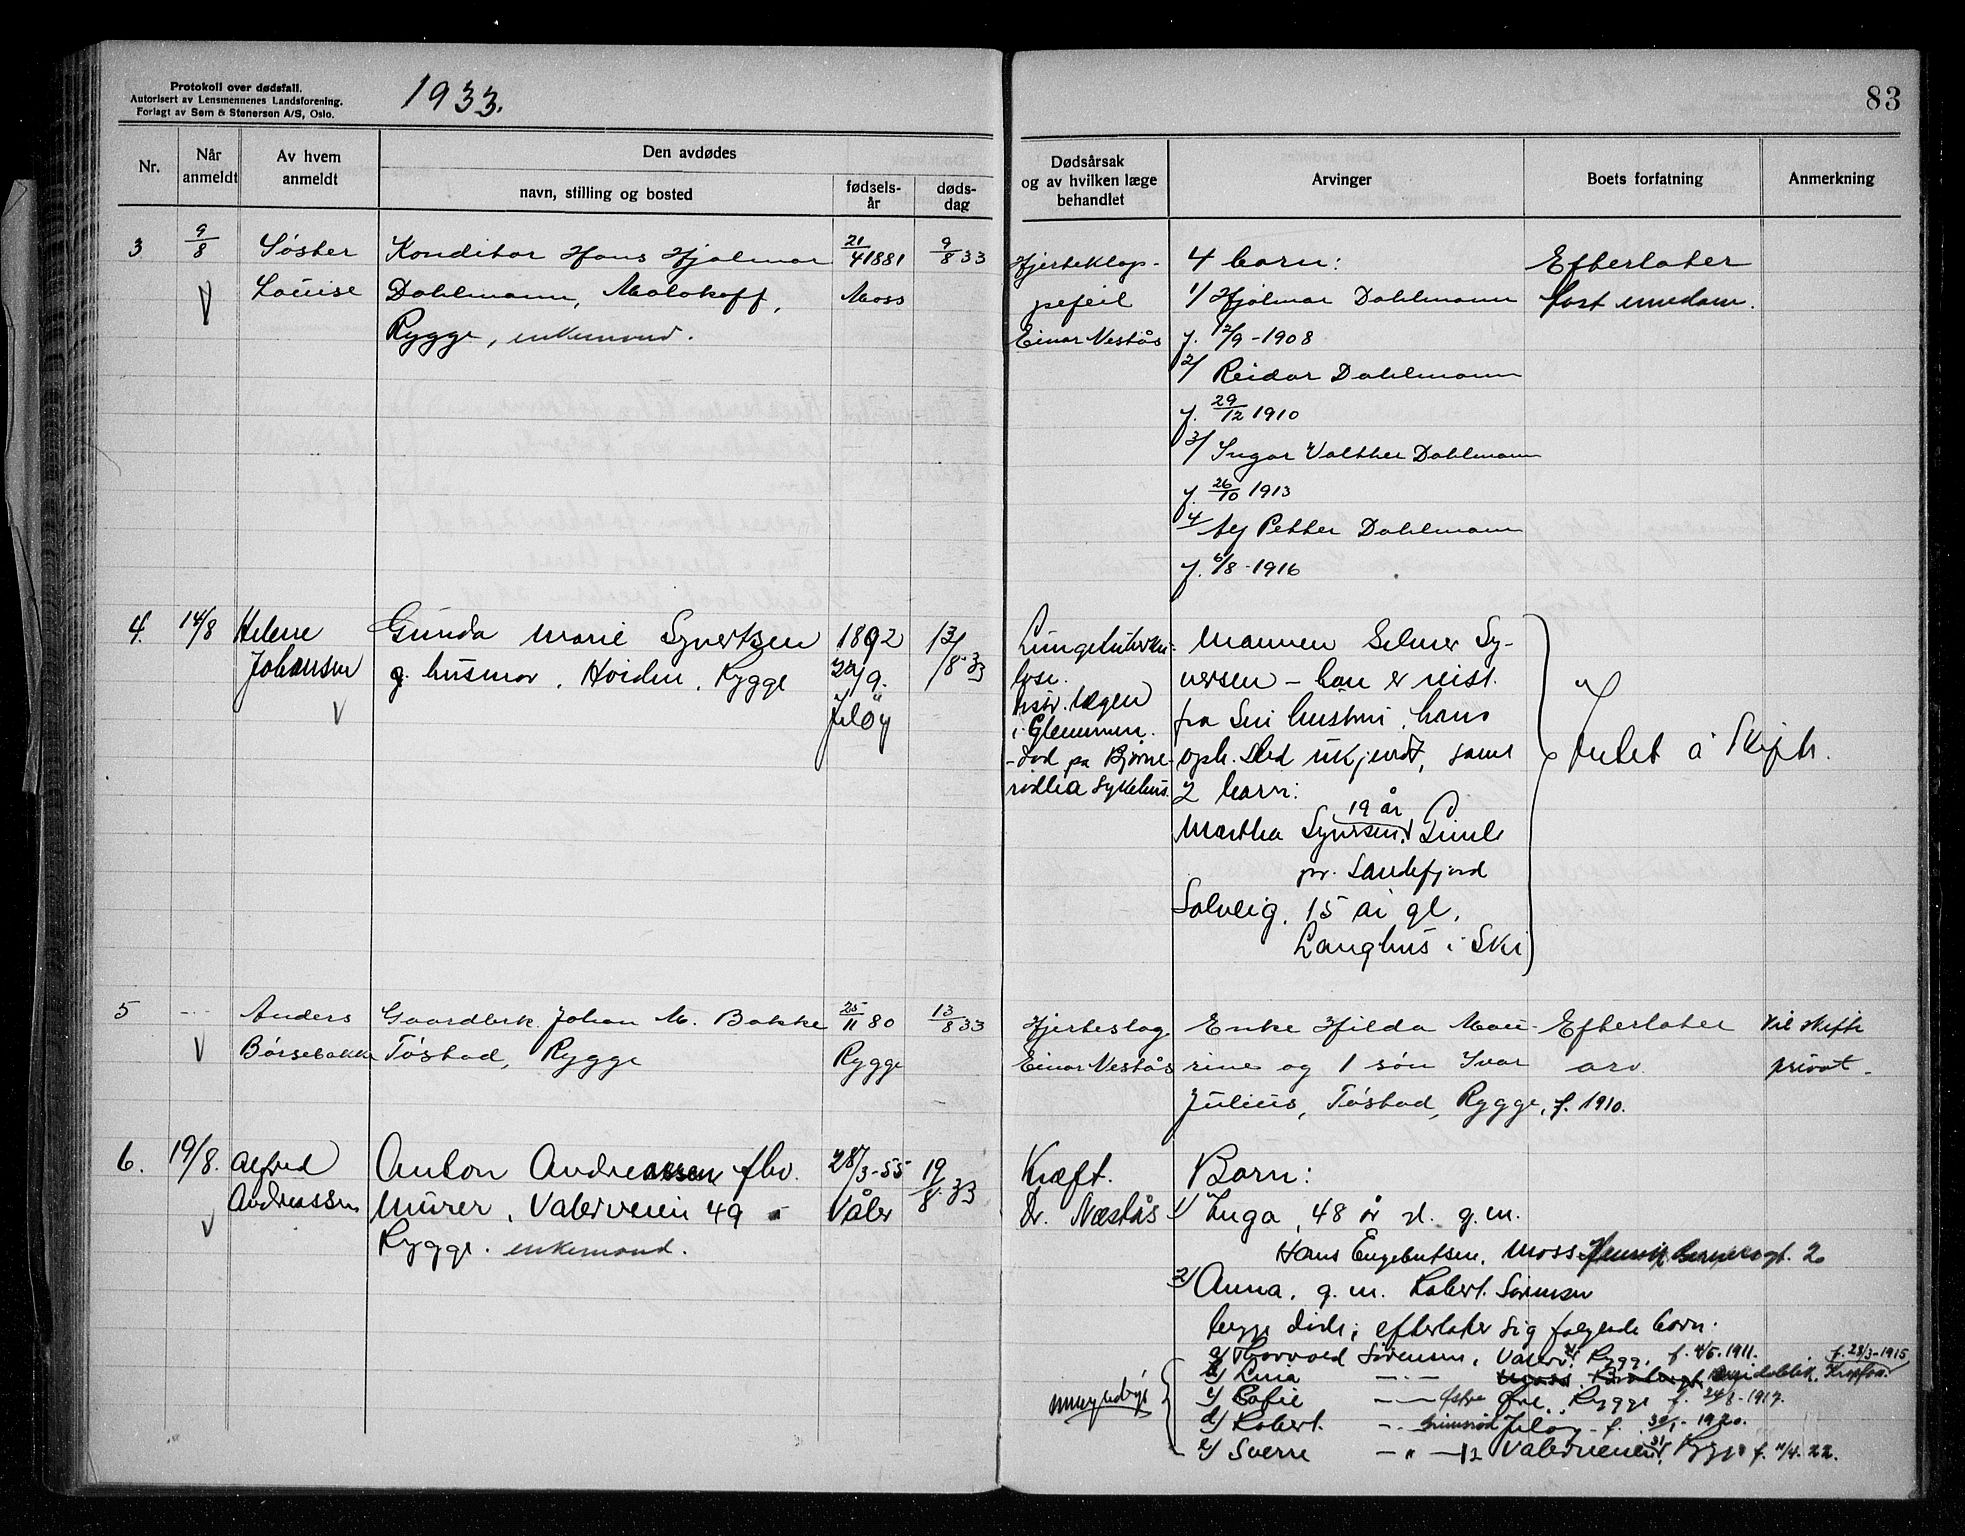 Protokoll over dødsfall.
Autorisert av Lensmennenes Landsforening.
Forlagt av Sem & Stenersen A/S, Oslo.
1933.
83
Nr.
Når anmeldt
Av hvem anmeldt
Den avdødes
navn, stilling og bosted
fødsels-år
døds-dag
Dødsårsak og av hvilken læge behandlet
Arvinger
Boets forfatning
Anmerkning
3
9/8
Søster
Louise
Konditor Hans Hjalmar
Dahlmann, Malakoff,
Rygge, enkemand.
21/4 1881
Moss
9/8 33
Hjerteklap-
pefeil
Einar Nestås
4 barn:
1/ Hjalmar Dahlmann
f. 12/9-1908
2/ Reidar Dahlmann
f. 29/12 1910
3/ Ingar Walther Dahlmann
f. 26/10 1913
4/ Petter Dahlmann
f. 6/8-1916
Efterlater
fast eiendom.
4.
14/8
Helene
Johansen
Gunda Marie Syvertsen
g. husmor, Høiden, Rygge
1892
22/9.
Jeløy
13/8-33
Lungetuberku-
lose.
distr. lægen
i Glemmen.
- død på Bjørne-
rødlia Sykehus.
Mannen Selmer Sy-
versen - han er reist
fra sin hustru, hans
oph. sted ukjendt, samt
2 barn:
19 år
Martha Syversen, Gimle
pr. Sandefjord
Solveig, 15 år gl,
Langhus i Ski
intet å skifte.
5
- - -
Anders
Børsebakke
Gaardbrk. Johan M. Bakke
Tøsbad, Rygge
25/11 80
Rygge
13/8 33
Hjerteslag
Einar Nestås
Enke Hilda Mau-
rine og 1 søn Ivar
Julius, Tøsbad, Rygge, f. 1910.
Efterlater
arv.
Vil skifte
privat.
6.
19/8.
Alfred
Andreassen
Anton Andreassen fhv.
Murer, Vålerveien 49
Rygge. enkemand.
28/3-55
Våler
19/8-33
Kræft.
Dr. Næstås
Barn:
1/ Inga, 48 år gl. g.m.
Hans Engebretsen, Moss, Henrik Gernersgt. 2
2/ Anna, g.m. Robert Sørensen
begge døde; efterlater sig følgende barn.
a/ Thorvald Sørensen, Valerv. Rygge, f. 4/5.1911.
b/ Lina - - - Krapfos. f. 28/3-1915
c/ Sofie - - - Øre, Rygge f. 24/8-1917.
d/ Robert - - Grimsrød Jeløy - f. 30/1-1920.
e/ Sverre - " - Valerveien 31, Rygge f. 11/4.22.
umyndige